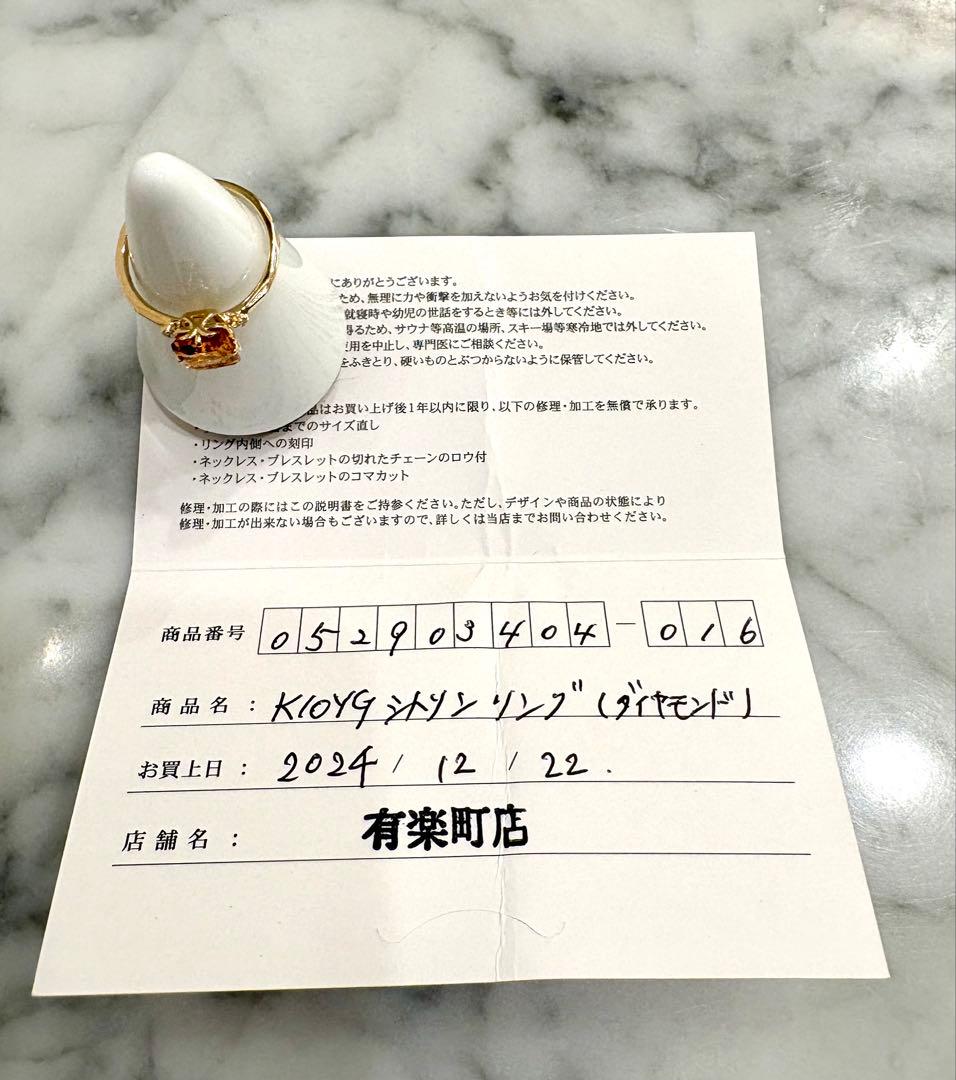 にありがとうございます。
ため、無理に力や衝撃を加えないようお気を付けください。
就寝時や幼児の世話をするとき等には外してください。
得るため、サウナ等高温の場所、スキー場等寒冷地では外してください。
使用を中止し、専門医にご相談ください。
をふきとり、硬いものとぶつからないように保管してください。
品はお買い上げ後1年以内に限り、以下の修理・加工を無償で承ります。
までのサイズ直し
・リング内側への刻印
・ネックレス・ブレスレットの切れたチェーンのロウ付
・ネックレス・ブレスレットのコマカット
修理・加工の際にはこの説明書をご持参ください。ただし、デザインや商品の状態により
修理・加工が出来ない場合もございますので、詳しくは当店までお問い合わせください。
商品番号 052903404-016
商品名 : K10YGシトリンリング(ダイヤモンド)
お買上日 : 2024 / 12 / 22.
店舗名 : 有楽町店